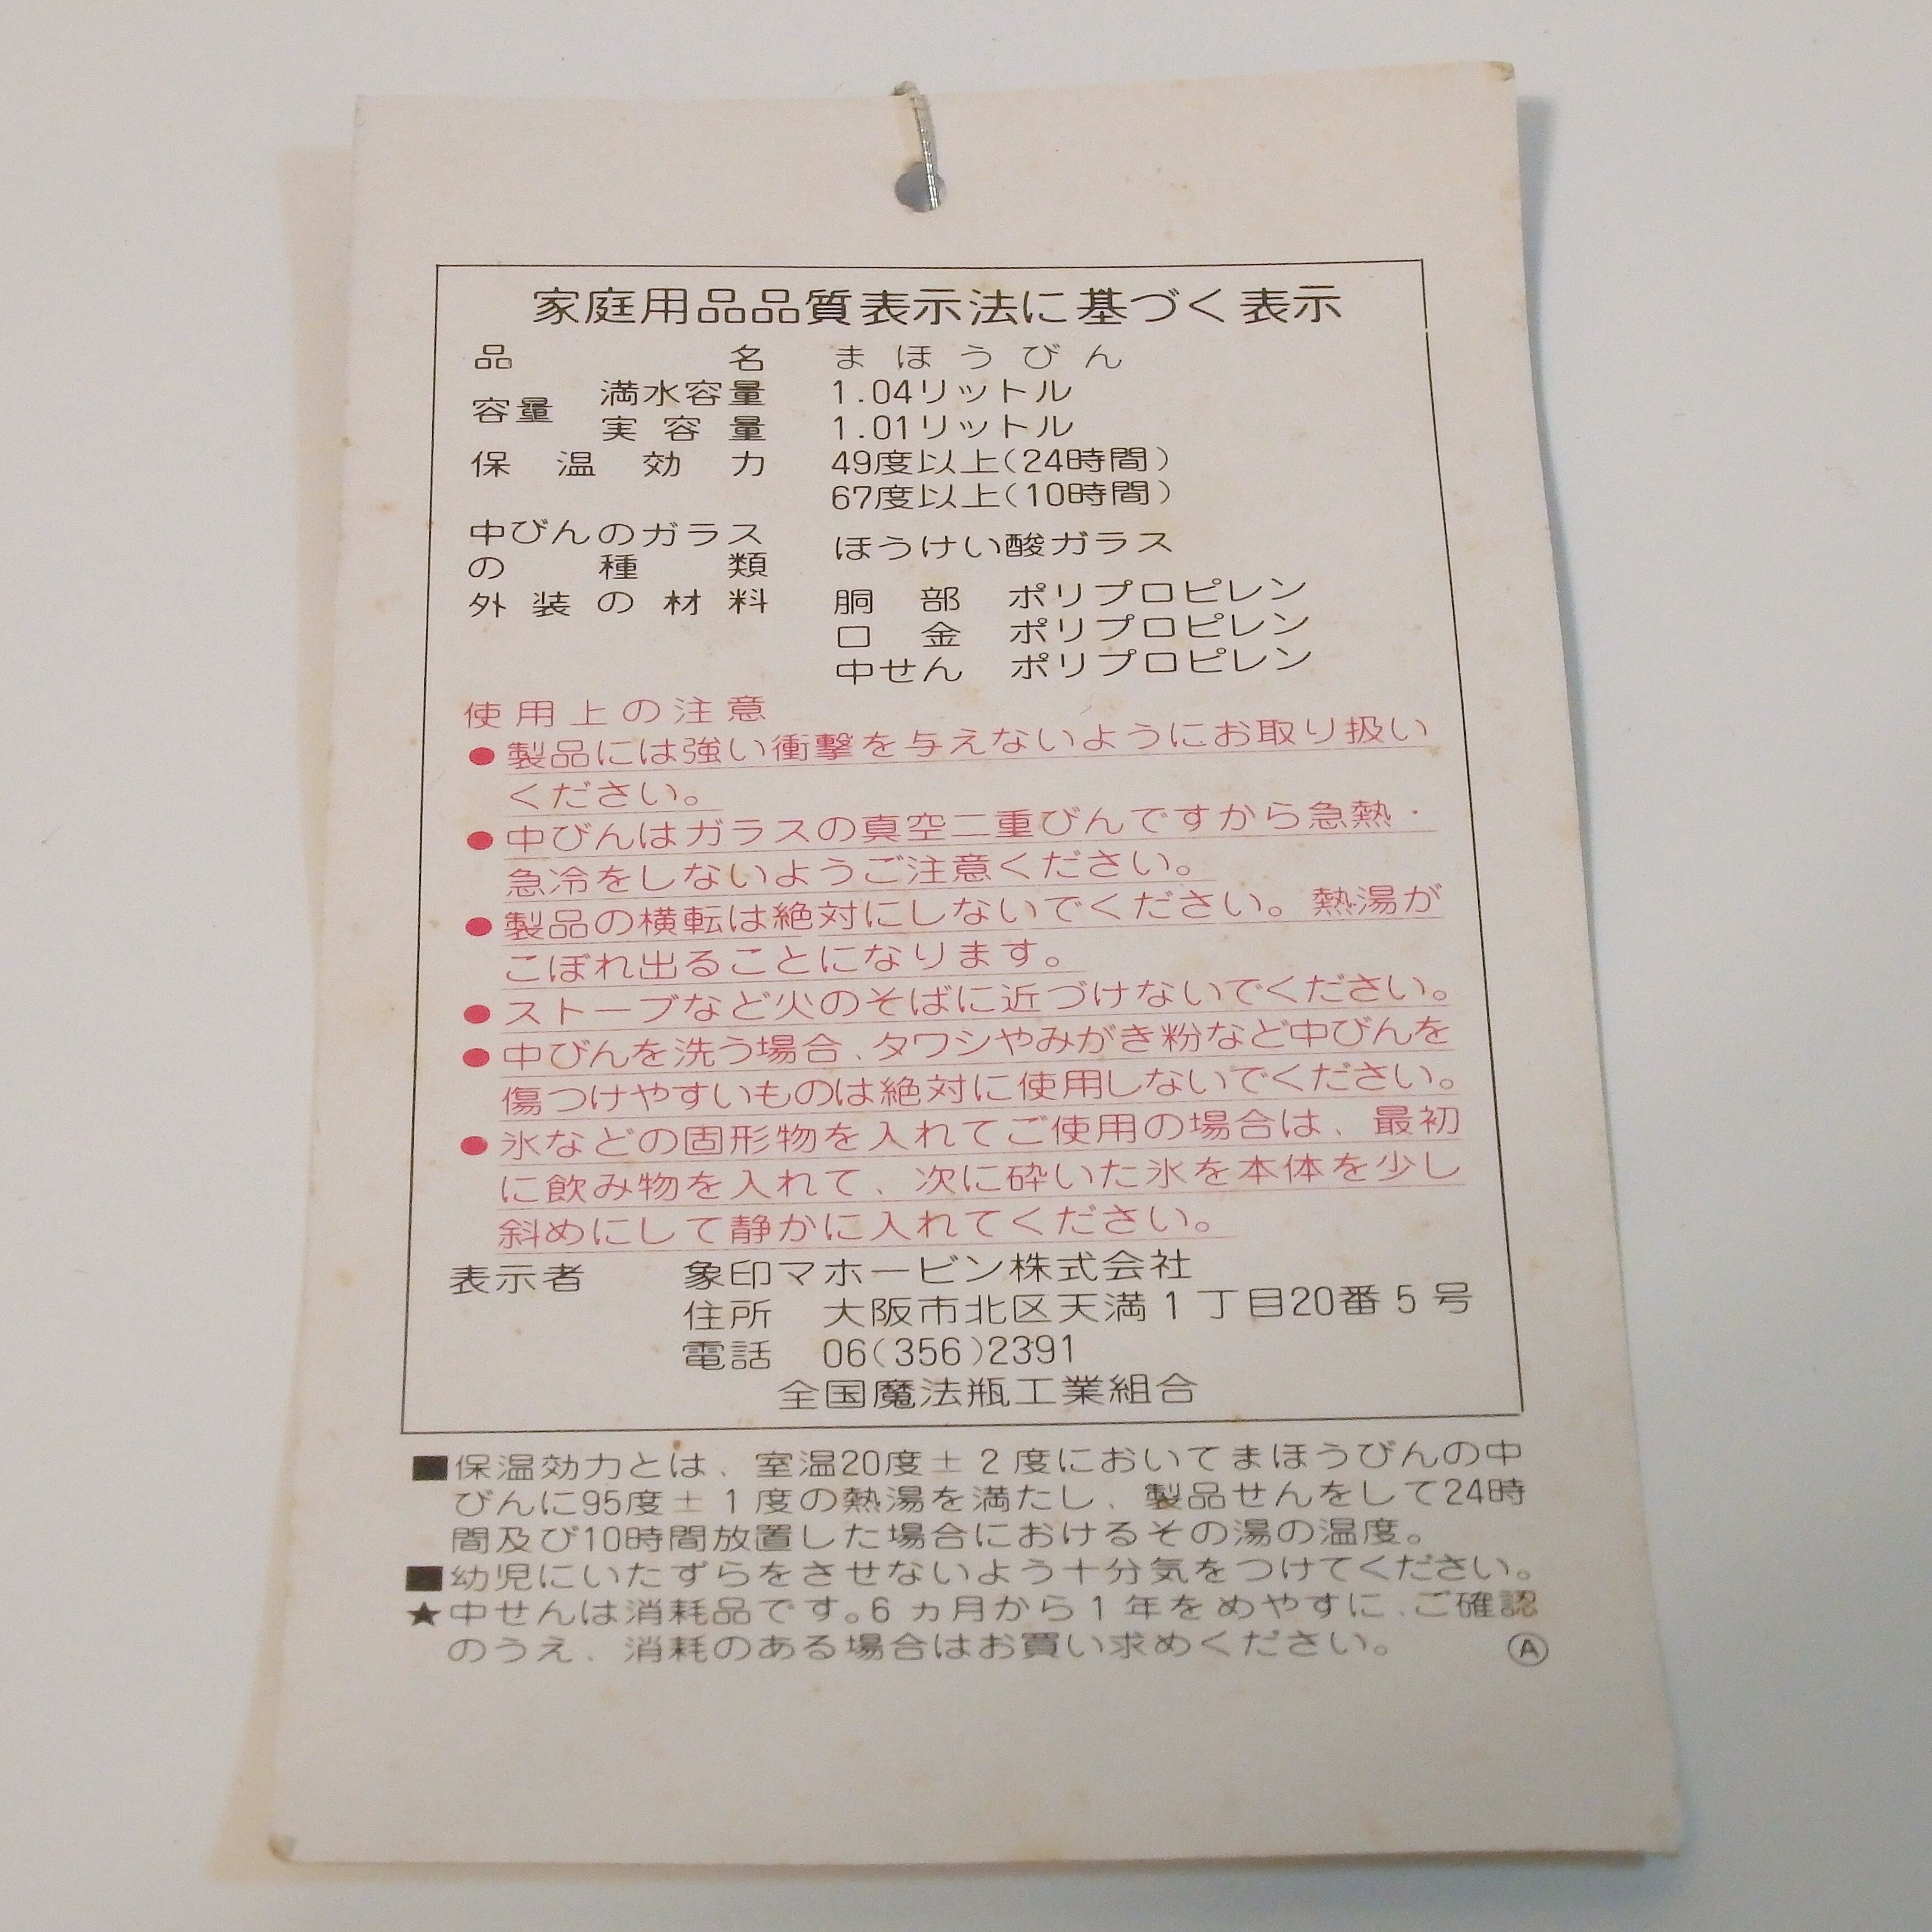 家庭用品品質表示法に基づく表示
品名 まほうびん
容量 満水容量 1.04リットル
実容量 1.01リットル
保温効力 49度以上(24時間)
67度以上(10時間)
中びんのガラス
の種類 ほうけい酸ガラス
外装の材料 胴部 ポリプロピレン
口金 ポリプロピレン
中せん ポリプロピレン
使用上の注意
●製品には強い衝撃を与えないようにお取り扱い
ください。
●中びんはガラスの真空二重びんですから急熱・
急冷をしないようご注意ください。
●製品の横転は絶対にしないでください。熱湯が
こぼれ出ることになります。
●ストーブなど火のそばに近づけないでください。
●中びんを洗う場合、タワシやみがき粉など中びんを
傷つけやすいものは絶対に使用しないでください。
●氷などの固形物を入れてご使用の場合は、最初
に飲み物を入れて、次に砕いた氷を本体を少し
斜めにして静かに入れてください。
表示者 象印マホービン株式会社
住所 大阪市北区天満1丁目20番5号
電話 06(356)2391
全国魔法瓶工業組合
■保温効力とは、室温20度±2度においてまほうびんの中
びんに95度±1度の熱湯を満たし、製品せんをして24時
間及び10時間放置した場合におけるその湯の温度。
■幼児にいたずらをさせないよう十分気をつけてください。
★中せんは消耗品です。6ヵ月から1年をめやすに、ご確認
のうえ、消耗のある場合はお買い求めください。
Ⓐ